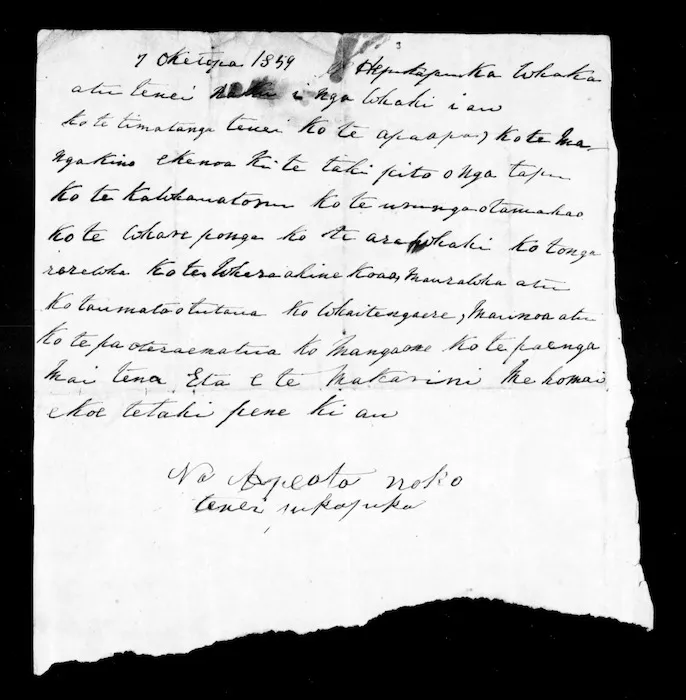 7 Oketopa 1859 He pukapuka Whaka
atu tenei naku i nga Whaki i au
ko te timatanga tenei ko te apaapa, ko te Ma-
ngakino ekenoa ki te taki pito o nga tapu
ko te Kawhauatoru ko te urungaotamakao
ko te Whare ponga ko te arawhaki ko tonga
rarewha ko te Wheraahine koaa, Maurawha atu
ko taumataotutaua ko Whaitengaere, Maunoa atu
ko te paoteraematua ko Mangaone ko te paenga
Mai tena Eta e te Makarini Me homai
ekoe tetaki pene ki au
Na Apeata noko
tenei pukapuka